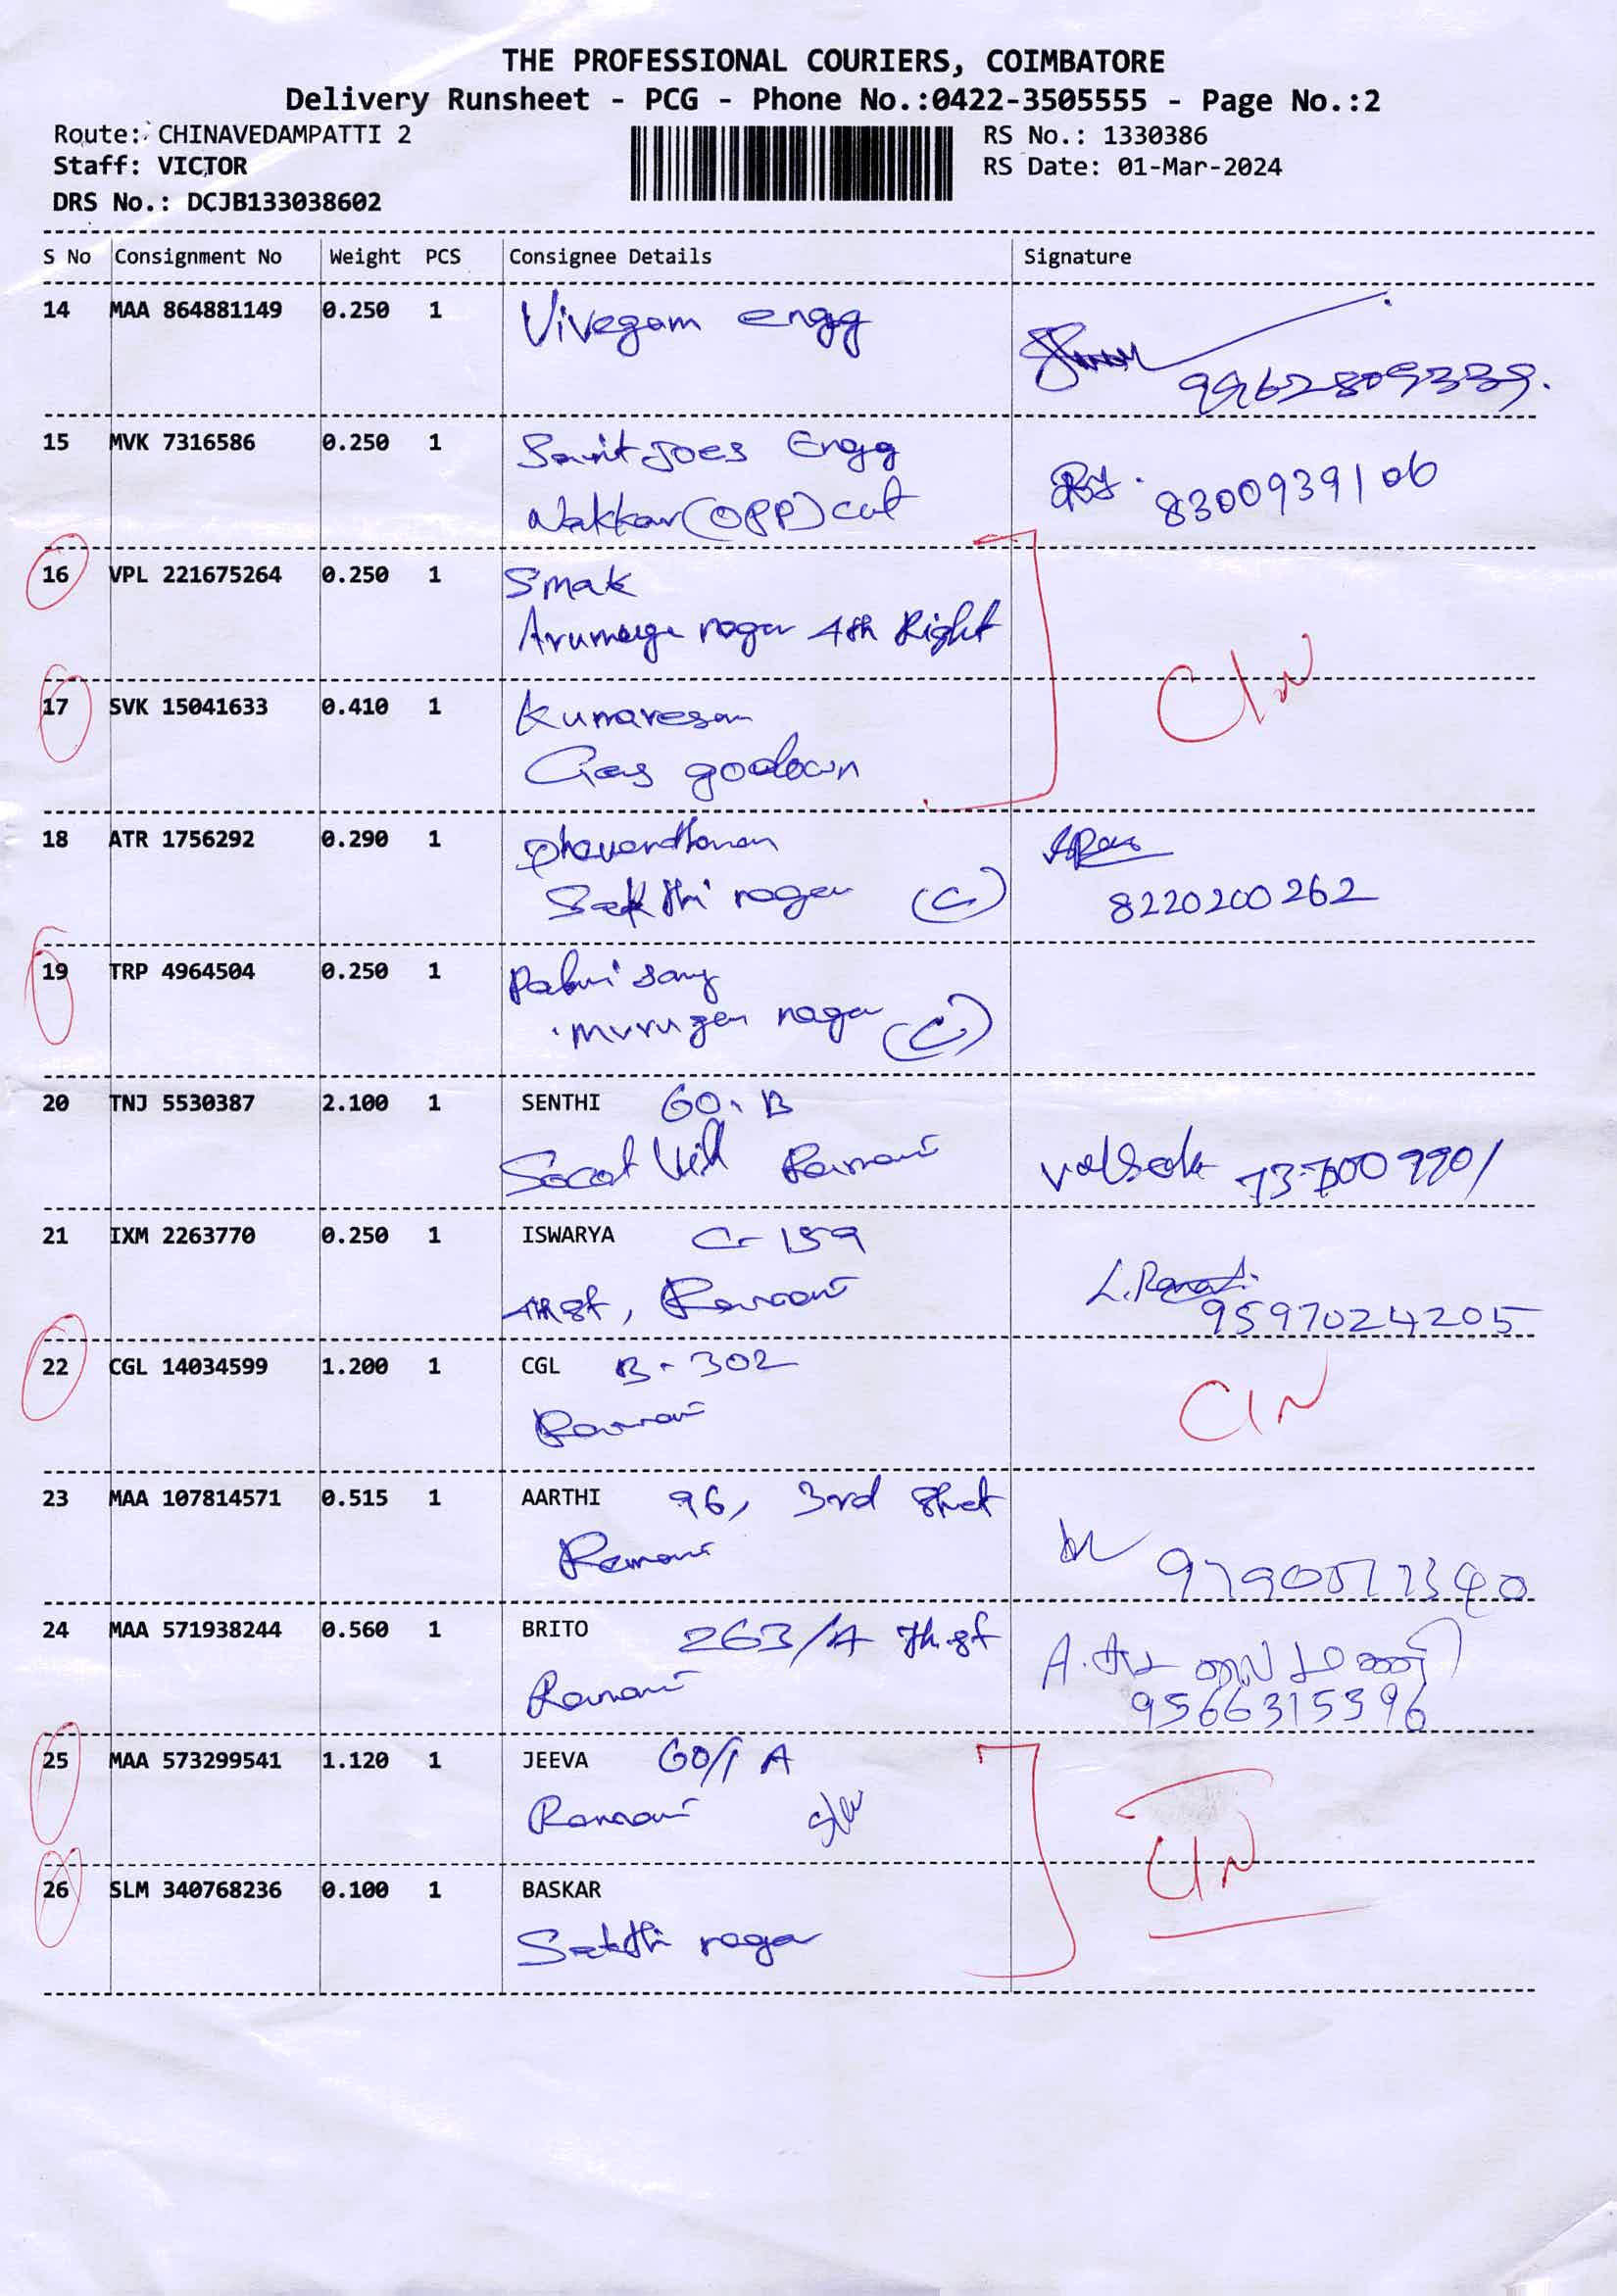 THE PROFESSIONAL COURIERS, COIMBATORE
Delivery Runsheet - PCG - Phone No.:0422-3505555 - Page No.:2
Route: CHINAVEDAMPATTI 2
RS No.: 1330386
Staff: VICTOR
RS Date: 01-Mar-2024
DRS No.: DCJB133038602
S No Consignment No Weight PCS Consignee Details Signature
14 MAA 864881149 0.250 1 Vivegam engg
9962809339.
15 MVK 7316586 0.250 1 Saint Joes Engg
(OPP) cut
8300939106
16 VPL 221675264 0.250 1 Smak
Arumuga nagar 4th Right
C/N
17 SVK 15041633 0.410 1 Kumaresan
Gas godown
18 ATR 1756292 0.290 1
Sakthi nagar (C)
8220200262
19 TRP 4964504 0.250 1
murugan nagar (C)
20 TNJ 5530387 2.100 1 SENTHI 60, B
Ramani
21 IXM 2263770 0.250 1 ISWARYA C-159
4th st, Ramani
9597024205
22 CGL 14034599 1.200 1 CGL B-302
Ramani
CIN
23 MAA 107814571 0.515 1 AARTHI 96, 3rd Street
Ramani
24 MAA 571938244 0.560 1 BRITO 263/A 7th st
Ramani
9566315396
25 MAA 573299541 1.120 1 JEEVA 60/1 A
Ramani
CIN
26 SLM 340768236 0.100 1 BASKAR
Sakthi nagar